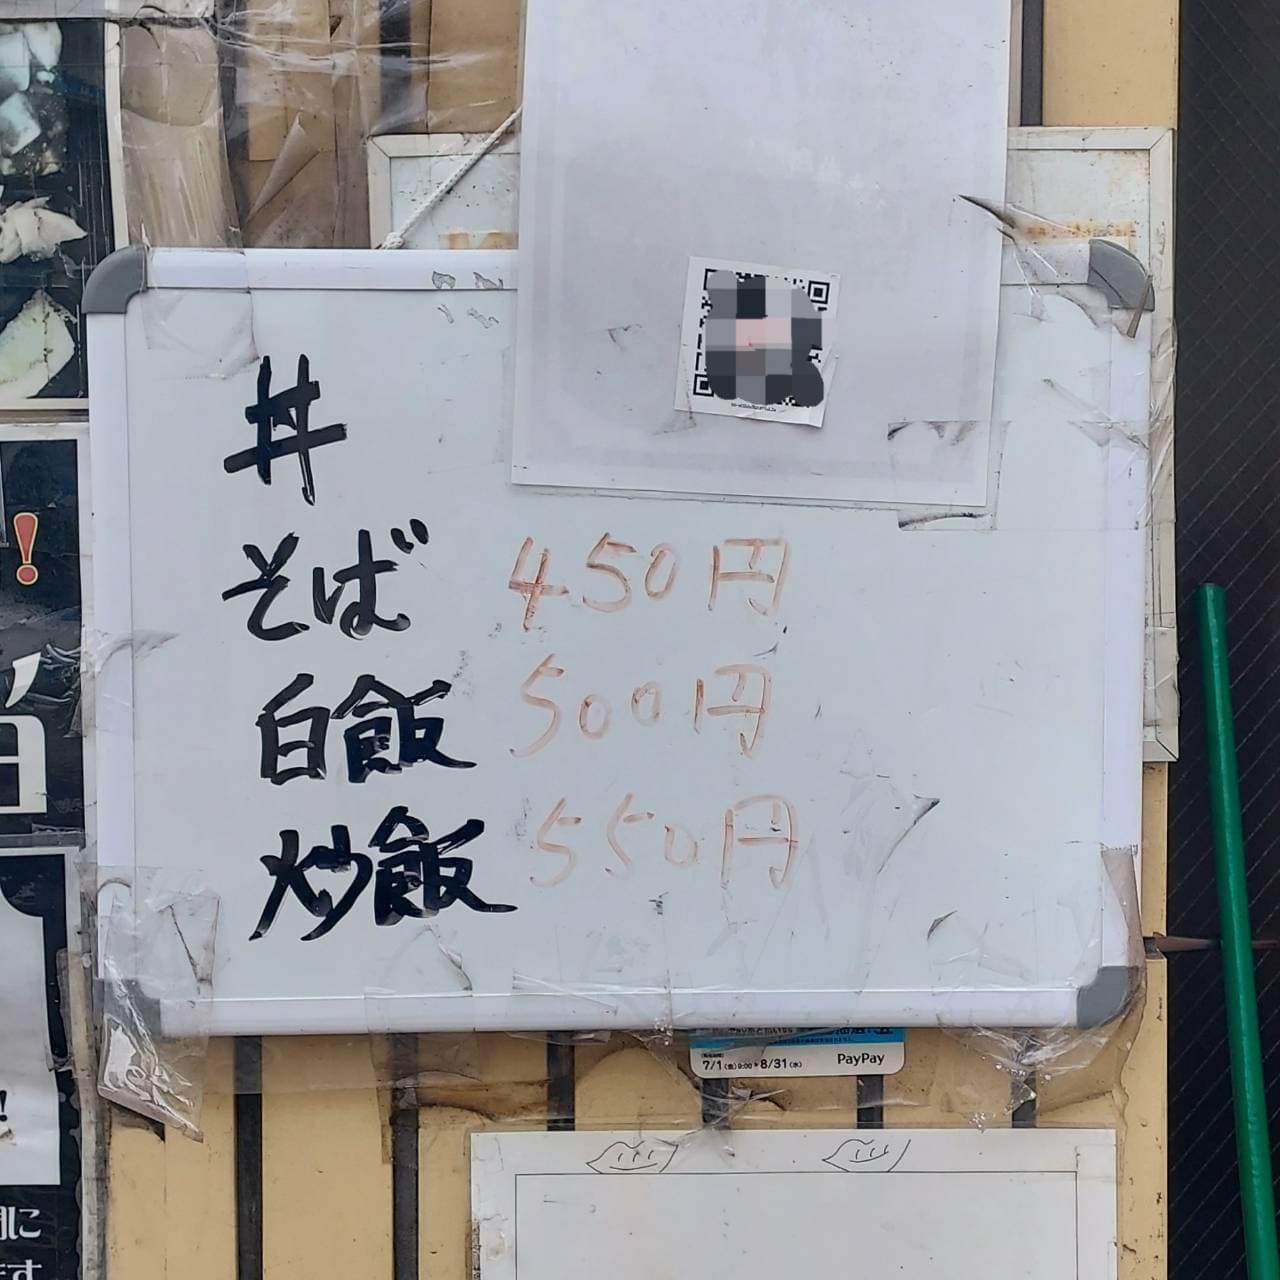 丼
そば 450円
白飯 500円
炒飯 550円
7/1(金)9:00〜8/31(水) PayPay
!
!
に
ます